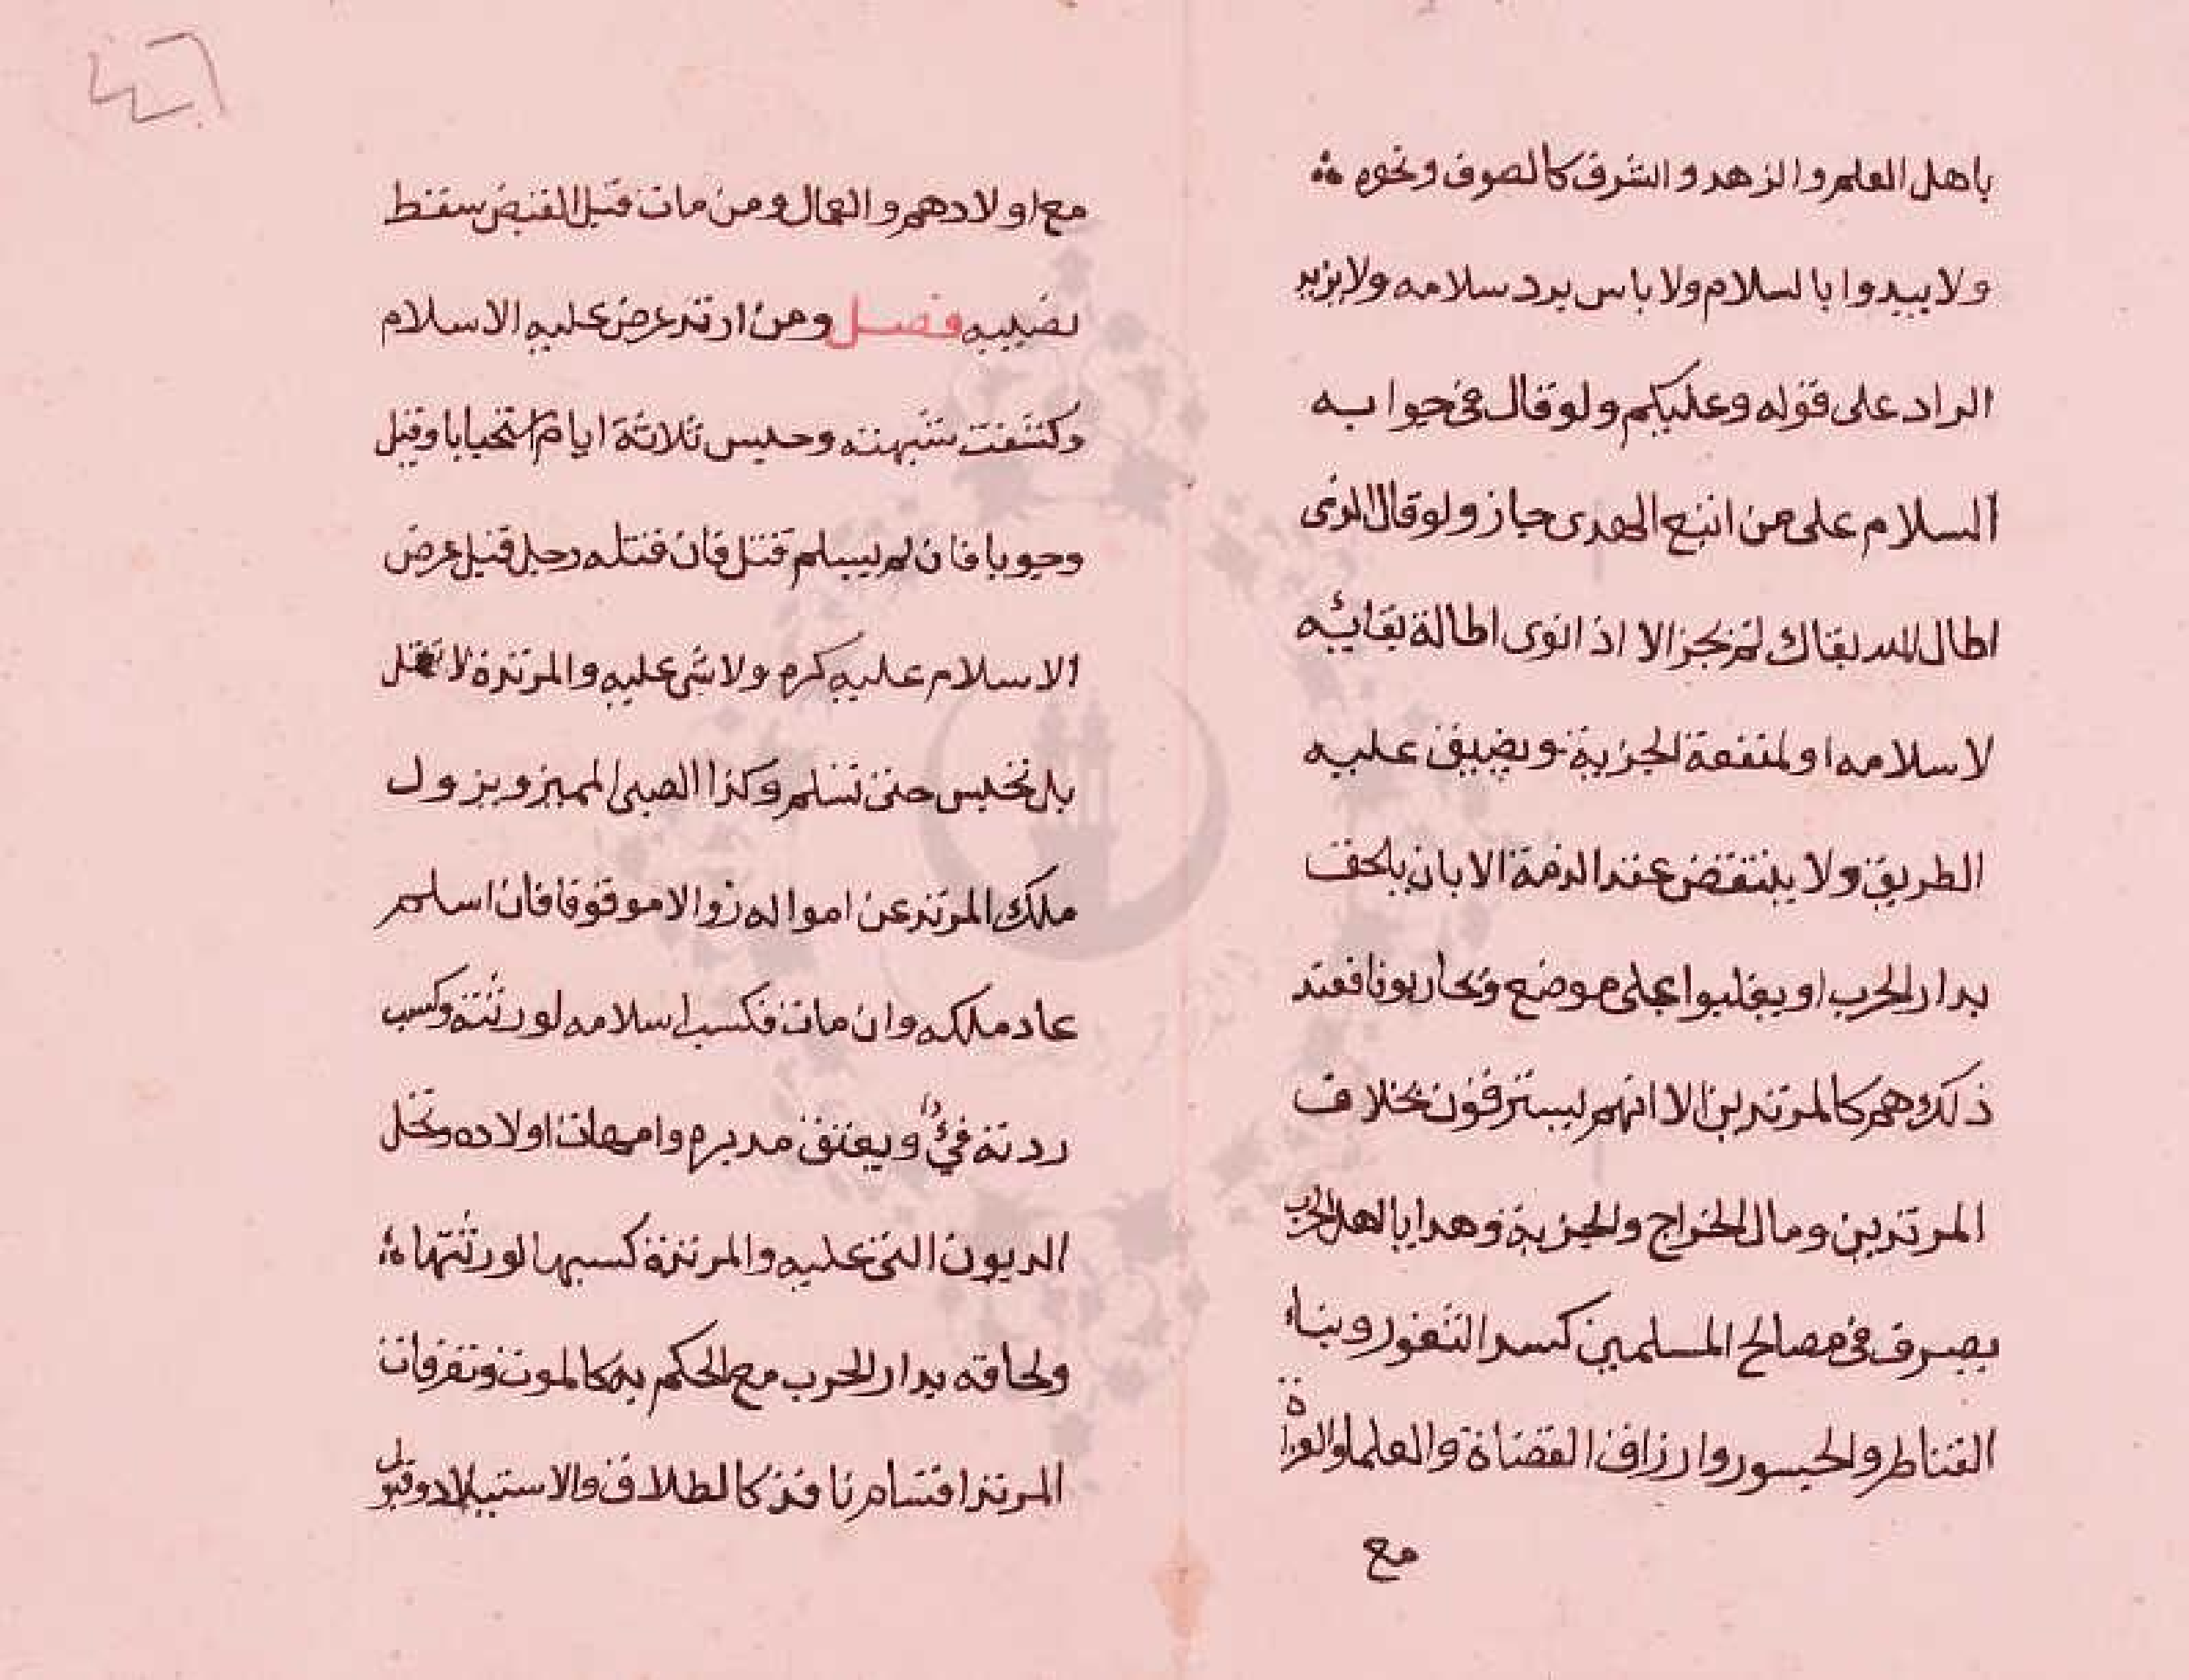 باهل العلم والزهد والشرف كالصوف ونحوه
ولا يبدوا بالسلام ولا باس برد سلامه ولا يزيد
الراد على قوله وعليكم ولو قال في جوابه
السلام على من اتبع الهدى جاز ولو قال لذمى
اطال الله بقاك لم يجز الا اذا نوى اطالة بقائه
لاسلامه او لمنفعة الجزية ويضيق عليه
الطريق ولا ينتقض عقد الذمة الا بان يلحق
بدار الحرب او يغلبوا على موضع ويحاربونا فعند
ذلك هم كالمرتدين الا انهم يسترقون بخلاف
المرتدين ومال الخراج والجزية وهدايا اهل الحرب
يصرف في مصالح المسلمين كسد الثغور وبناء
القناطر والجسور وارزاق القضاة والعلما والغزاة
مع
مع اولادهم والعمال ومن مات قبل القبض سقط
نصيبه فصل ومن ارتد عرض عليه الاسلام
وكشفت شبهته وحبس ثلاثة ايام استحبابا وقيل
وجوبا فان لم يسلم قتل فان قتله رجل قبل عرض
الاسلام عليه كره ولا شى عليه والمرتدة لا تقتل
بل تحبس حتى تسلم وكذا الصبى المميز ويزول
ملك المرتد عن امواله زوالا موقوفا فان اسلم
عاد ملكه وان مات فكسب اسلامه لورثته وكسب
ردته فيئ ويعتق مدبره وامهات اولاده وتحل
الديون التى عليه والمرتدة كسبها لورثتها
ولحاقه بدار الحرب مع الحكم به كالموت وتفرقات
المرتد اقسام نافذ كالطلاق والاستيلاد وقبول